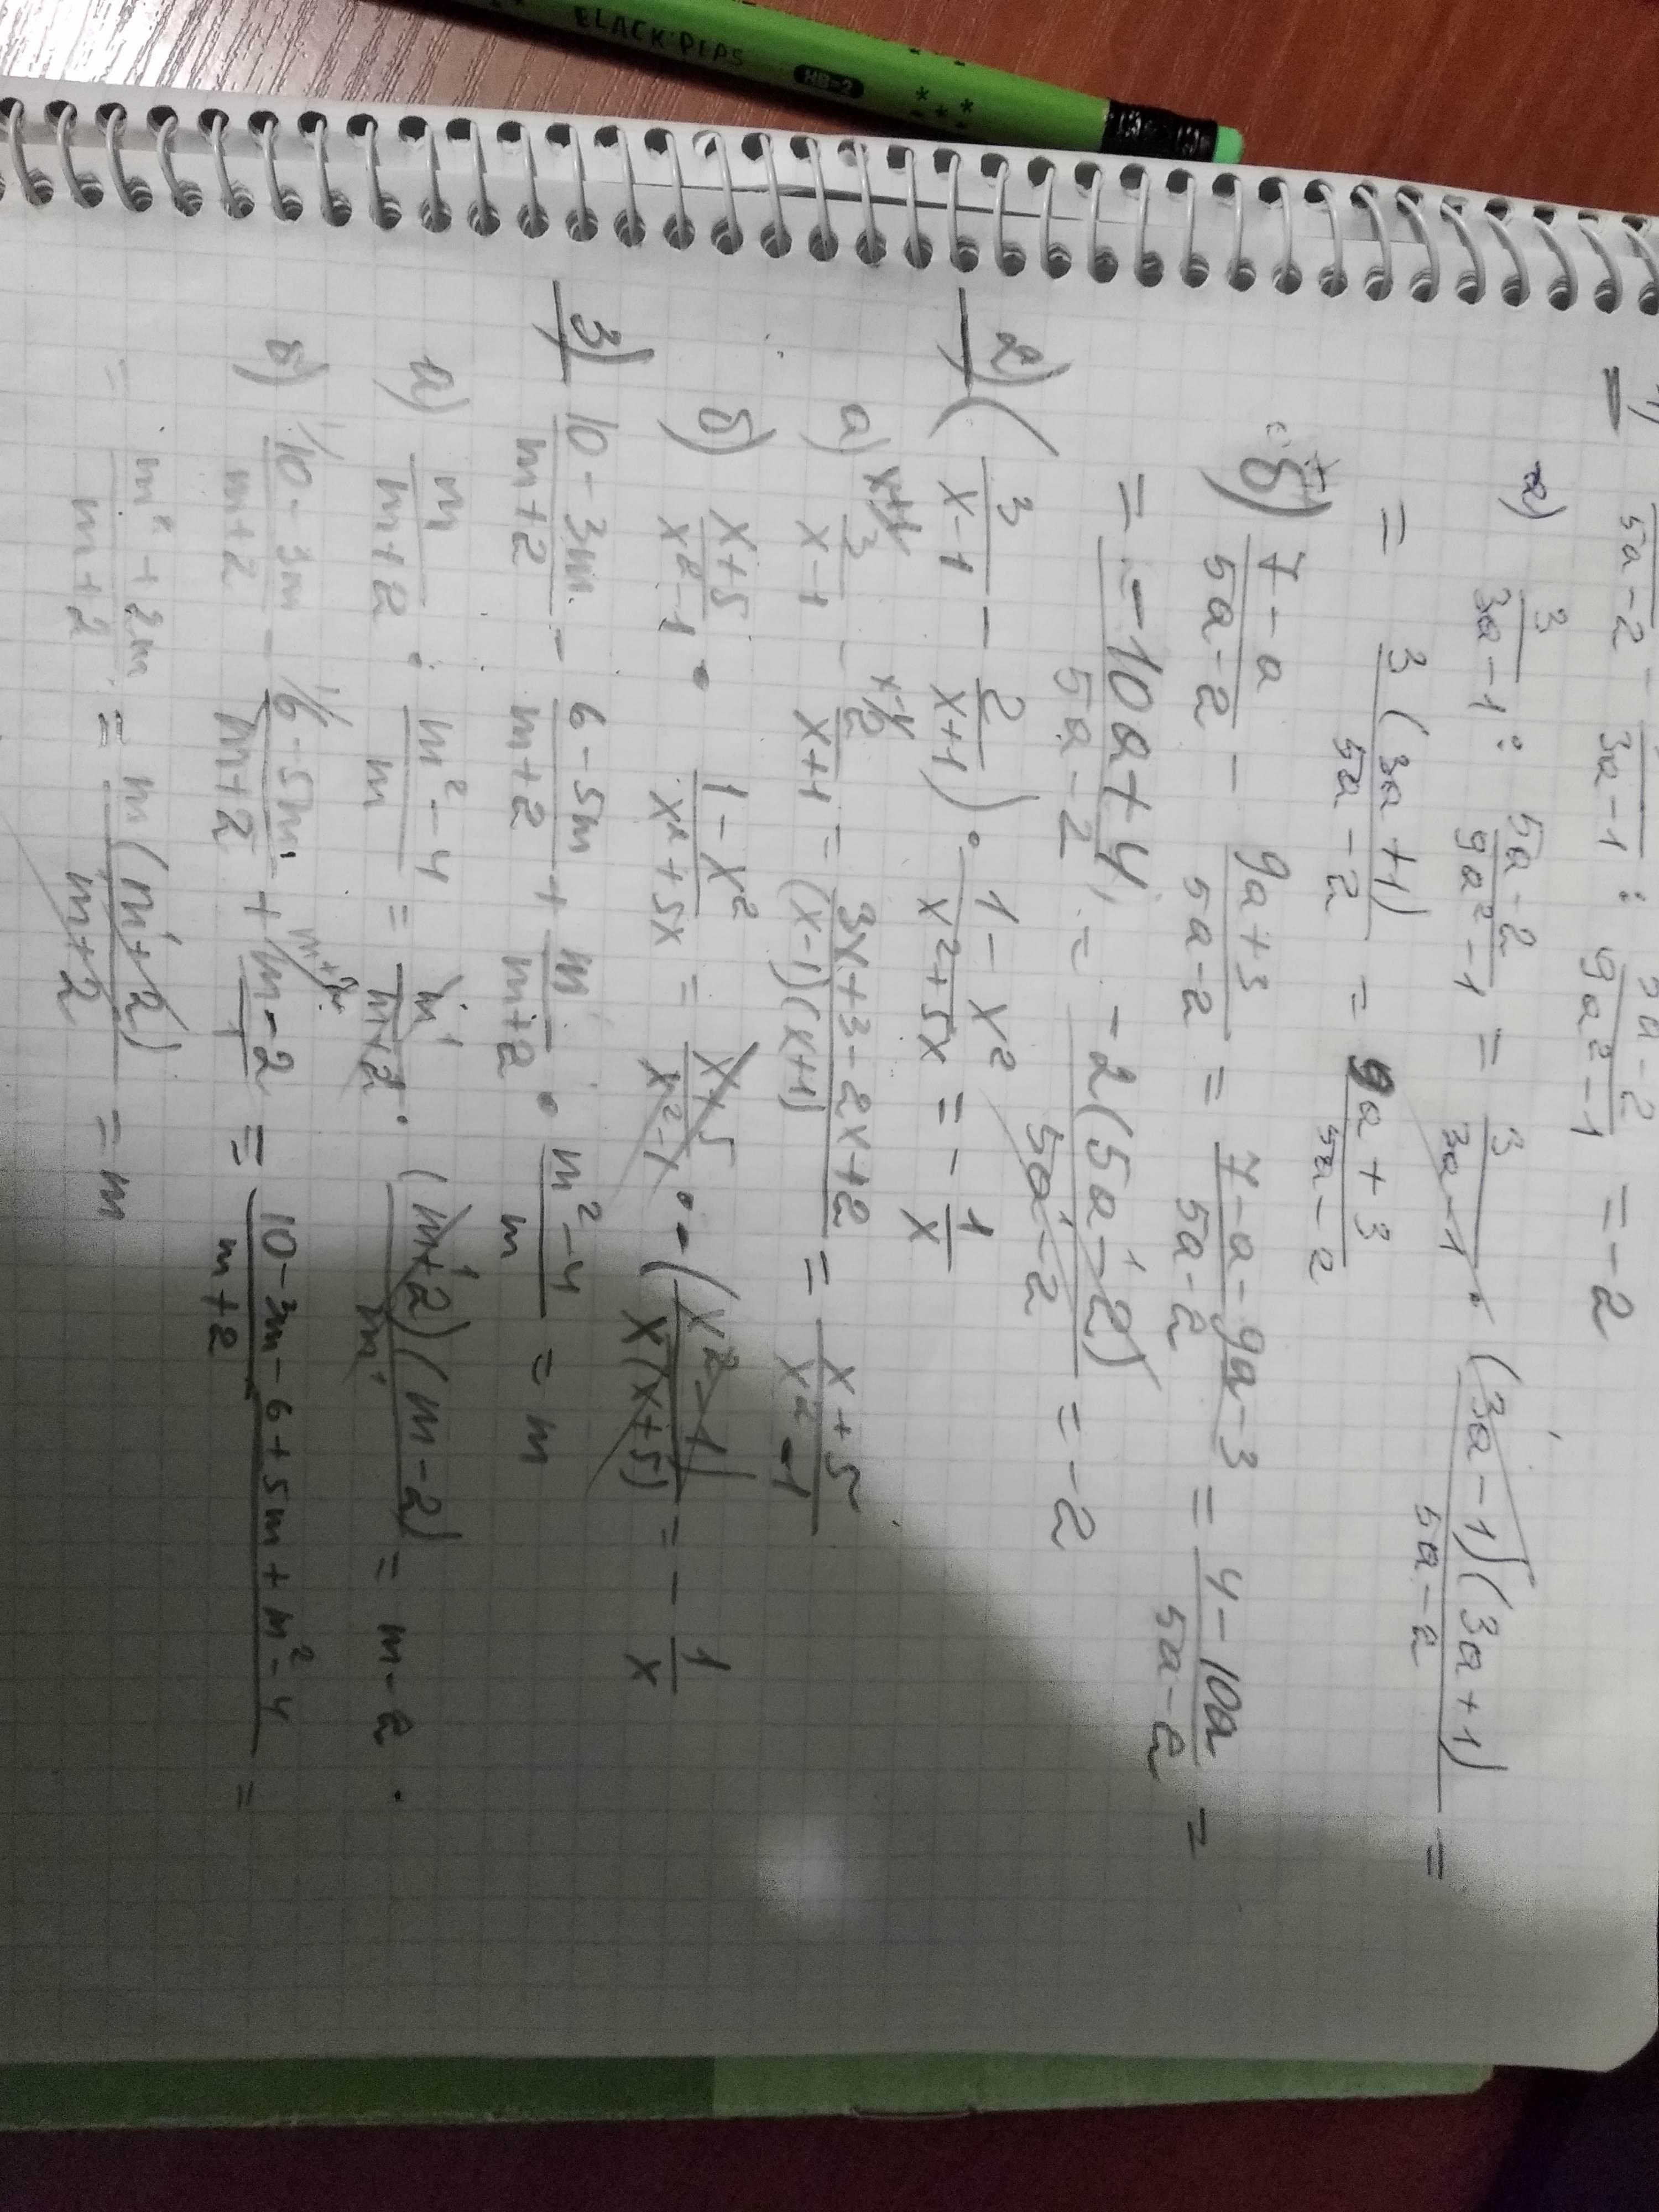 BLACK'PEPS
HB=2
1) 5a-2 - 3a-1 : 9a²-1 = -2
а) 3/(3a-1) : (5a-2)/(9a²-1) = 3/(3a-1) · (3a-1)(3a+1)/(5a-2) =
= 3(3a+1)/(5a-2) = (9a+3)/(5a-2)
б) (7-a)/(5a-2) - (9a+3)/(5a-2) = (7-a-9a-3)/(5a-2) = (4-10a)/(5a-2) =
= (-10a+4)/(5a-2) = -2(5a-2)/(5a-2) = -2
2) (3/(x-1) - 2/(x+1)) · (1-x²)/(x²+5x) = -1/x
а) x+1/ 3/(x-1) - x-1/ 2/(x+1) = (3x+3-2x+2)/((x-1)(x+1)) = (x+5)/(x²-1)
б) (x+5)/(x²-1) · (1-x²)/(x²+5x) = (x+5)/(x²-1) · -(x²-1)/(x(x+5)) = -1/x
3) (10-3m)/(m+2) - (6-5m)/(m+2) + m/(m+2) · (m²-4)/m = m
а) m/(m+2) · (m²-4)/m = m/(m+2) · (m+2)(m-2)/m = m-2
б) 1/ (10-3m)/(m+2) - 1/ (6-5m)/(m+2) + m+2/ (m-2)/1 = (10-3m-6+5m+m²-4)/(m+2) =
= (m²+2m)/(m+2) = m(m+2)/(m+2) = m